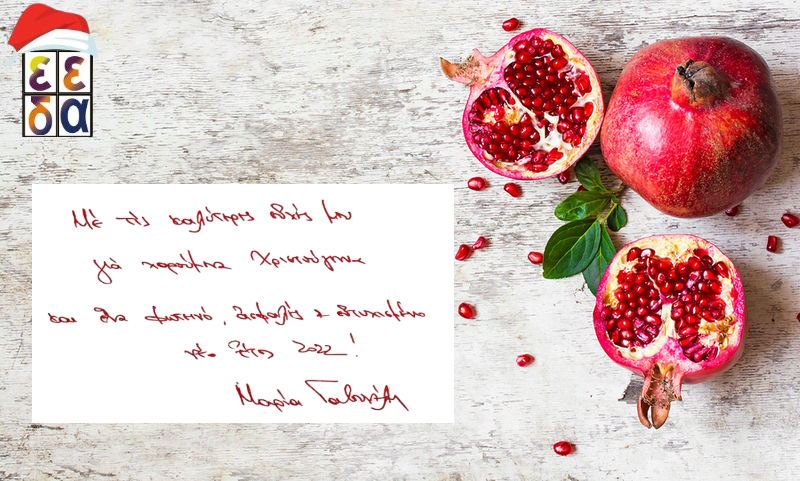 εε
δα
Μὲ τὶς καλύτερες εὐχές μου
γιὰ χαρούμενα Χριστούγεννα
καὶ ἕνα φωτεινό, ἀσφαλὲς & εὐτυχισμένο
νέο ἔτος 2022!
Μαρία Γαβουνέλη